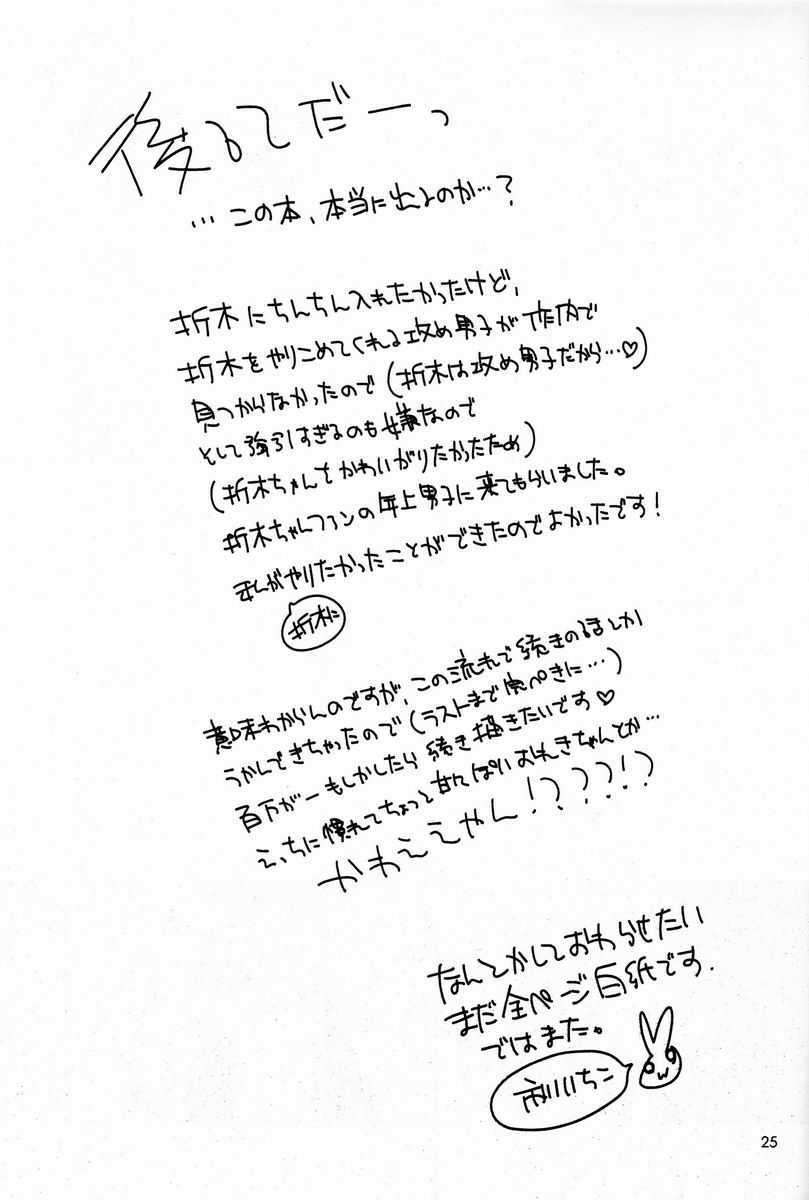 後るてだーっ
…この本、本当に出るのか…？
折木にちんちん入れたかったけど、
折木をやりこめてくれる攻め男子が作内で
見つからなかったので（折木は攻め男子だから…♡）
として強引すぎるのも嫌なので
（折木ちゃんをかわいがりたかったため）
折木ちゃんファンの年上男子に来てもらいました。
がやりたかったことができたのでよかったです！
折木に
意味わからんのですが、この流れで続きの話とか
うかんできちゃったので（ラストまで完ぺきに…）
百万が一もしかしたら続き描きたいです♡
えっちに慣れてちょっと甘えっぽいおれきちゃんとか…
かわええやん！？？？！？
なんとかしておわらせたい
まだ全ページ白紙です．
ではまた。
いちこ
25